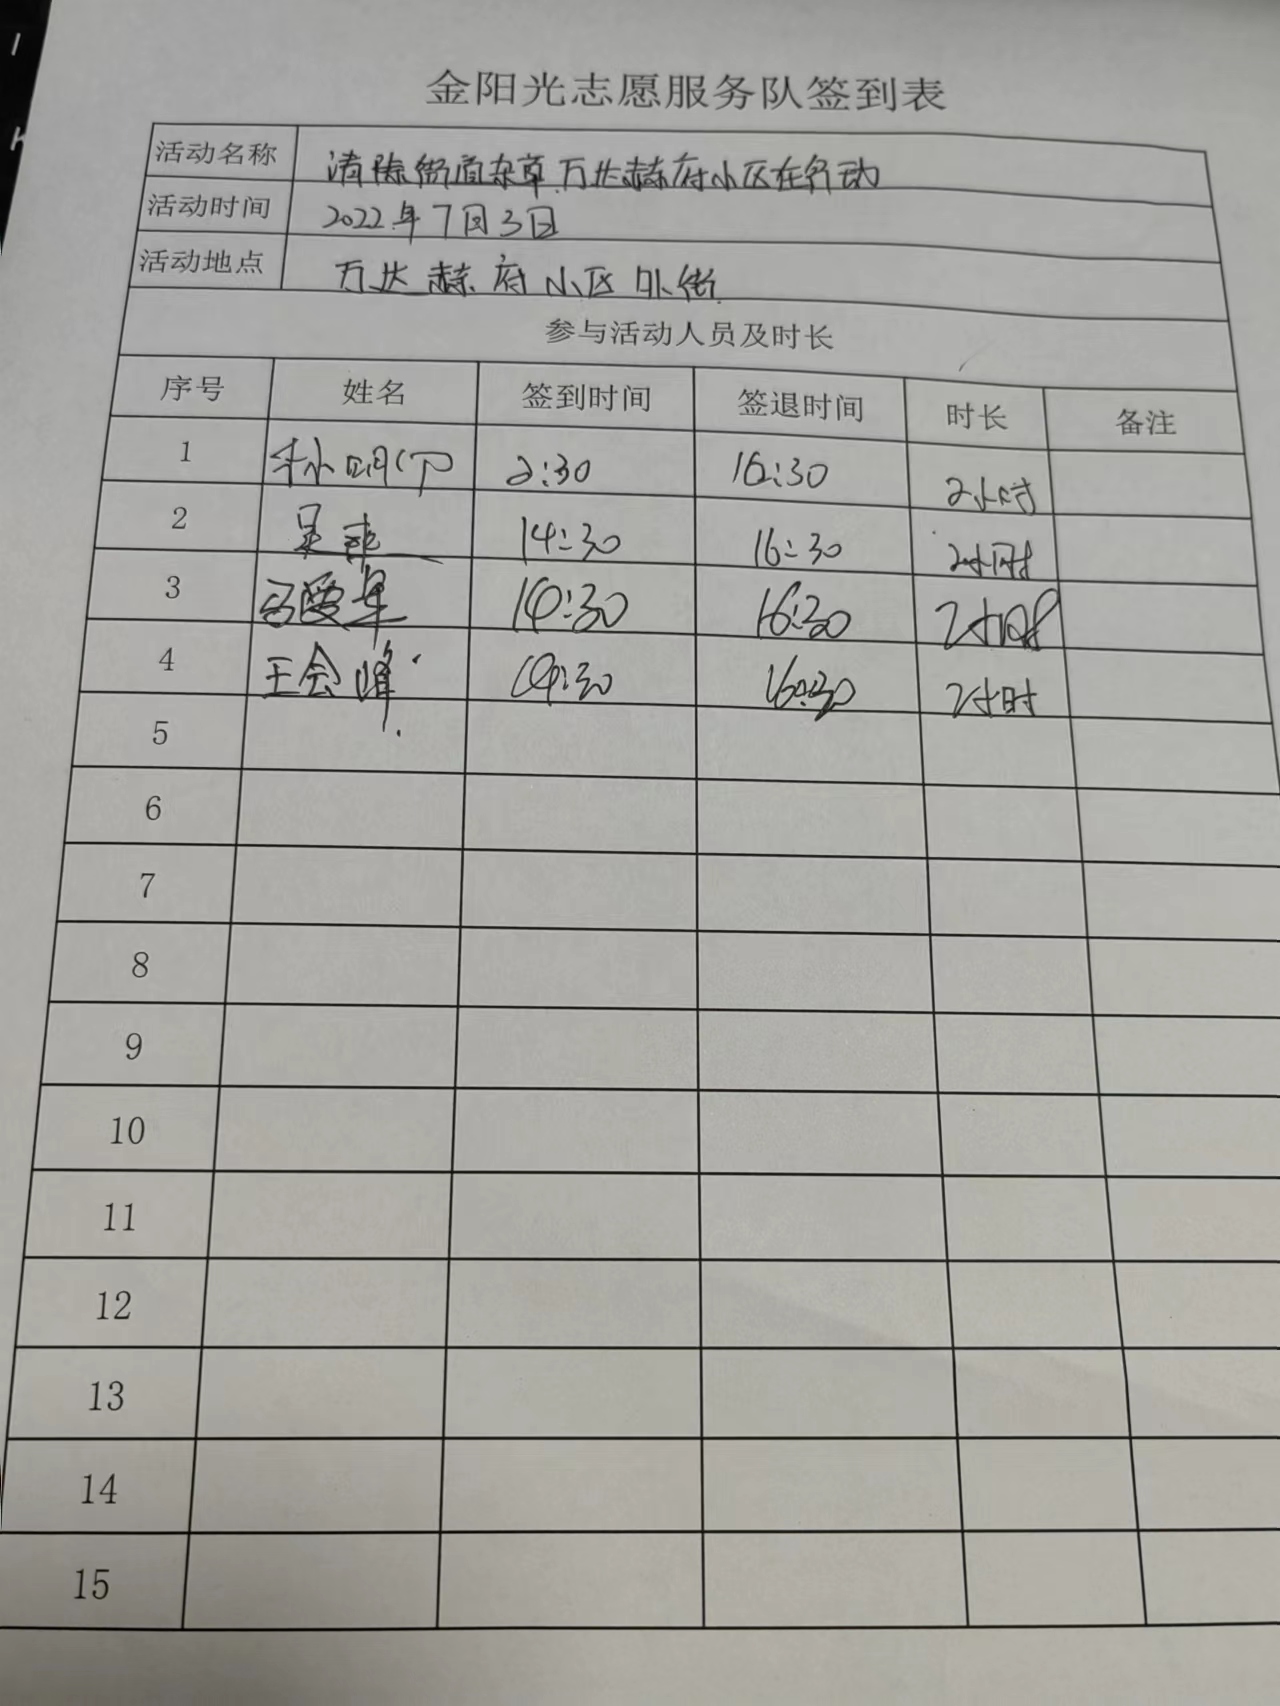 金阳光志愿服务队签到表
活动名称 清除街道杂草 万达赫府小区在行动
活动时间 2022年7月3日
活动地点 万达赫府小区外街
参与活动人员及时长
序号 姓名 签到时间 签退时间 时长 备注
1 2:30 16:30 2小时
2 吴 14:30 16:30 2小时
3 14:30 16:30 2小时
4 王会峰 14:30 16:30 2小时
5
6
7
8
9
10
11
12
13
14
15